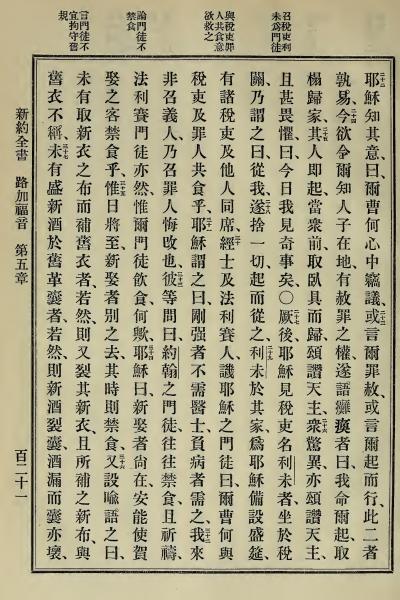 召稅吏利
未爲門徒
與稅吏罪
人共食意
欲救之
論門徒不
禁食
言門徒不
宜拘守舊
規
二十二
耶穌知其意、曰、爾曹何心中竊議、二十三或言爾罪赦、或言爾起而行、此二者
孰易、二十四今欲令爾知人子在地、有赦罪之權、遂語癱瘓者曰、我命爾起、取
榻歸家、二十五其人卽起、當衆前、取臥具而歸、頌讚天主、二十六衆驚異、亦頌讚天主、
且甚畏懼、曰、今日我見奇事矣、〇二十七厥後耶穌見稅吏名利未者、坐於稅
關、乃謂之曰、從我、二十八遂捨一切、起而從之、二十九利未於其家、爲耶穌備設盛筵、
有諸稅吏及他人同席、三十經士及法利賽人譏耶穌之門徒曰、爾曹何與
稅吏及罪人共食乎、三十一耶穌謂之曰、剛强者不需醫士、負病者需之、三十二我來
非召義人、乃召罪人悔改也、三十三彼等問曰、約翰之門徒往往禁食、且祈禱、
法利賽門徒亦然、惟爾門徒飲食、何歟、三十四耶穌曰、新娶者尙在、安能使賀
娶之客禁食乎、三十五惟日將至、新娶者別之去、其時則禁食、三十六又設喻語之曰、
未有取新衣之布、而補舊衣者、若然、則又裂其新衣、且所補之新布、與
舊衣不稱、三十七未有盛新酒於舊革囊者、若然、則新酒裂囊、酒漏而囊亦壞、
新約全書 路加福音 第五章 百二十一